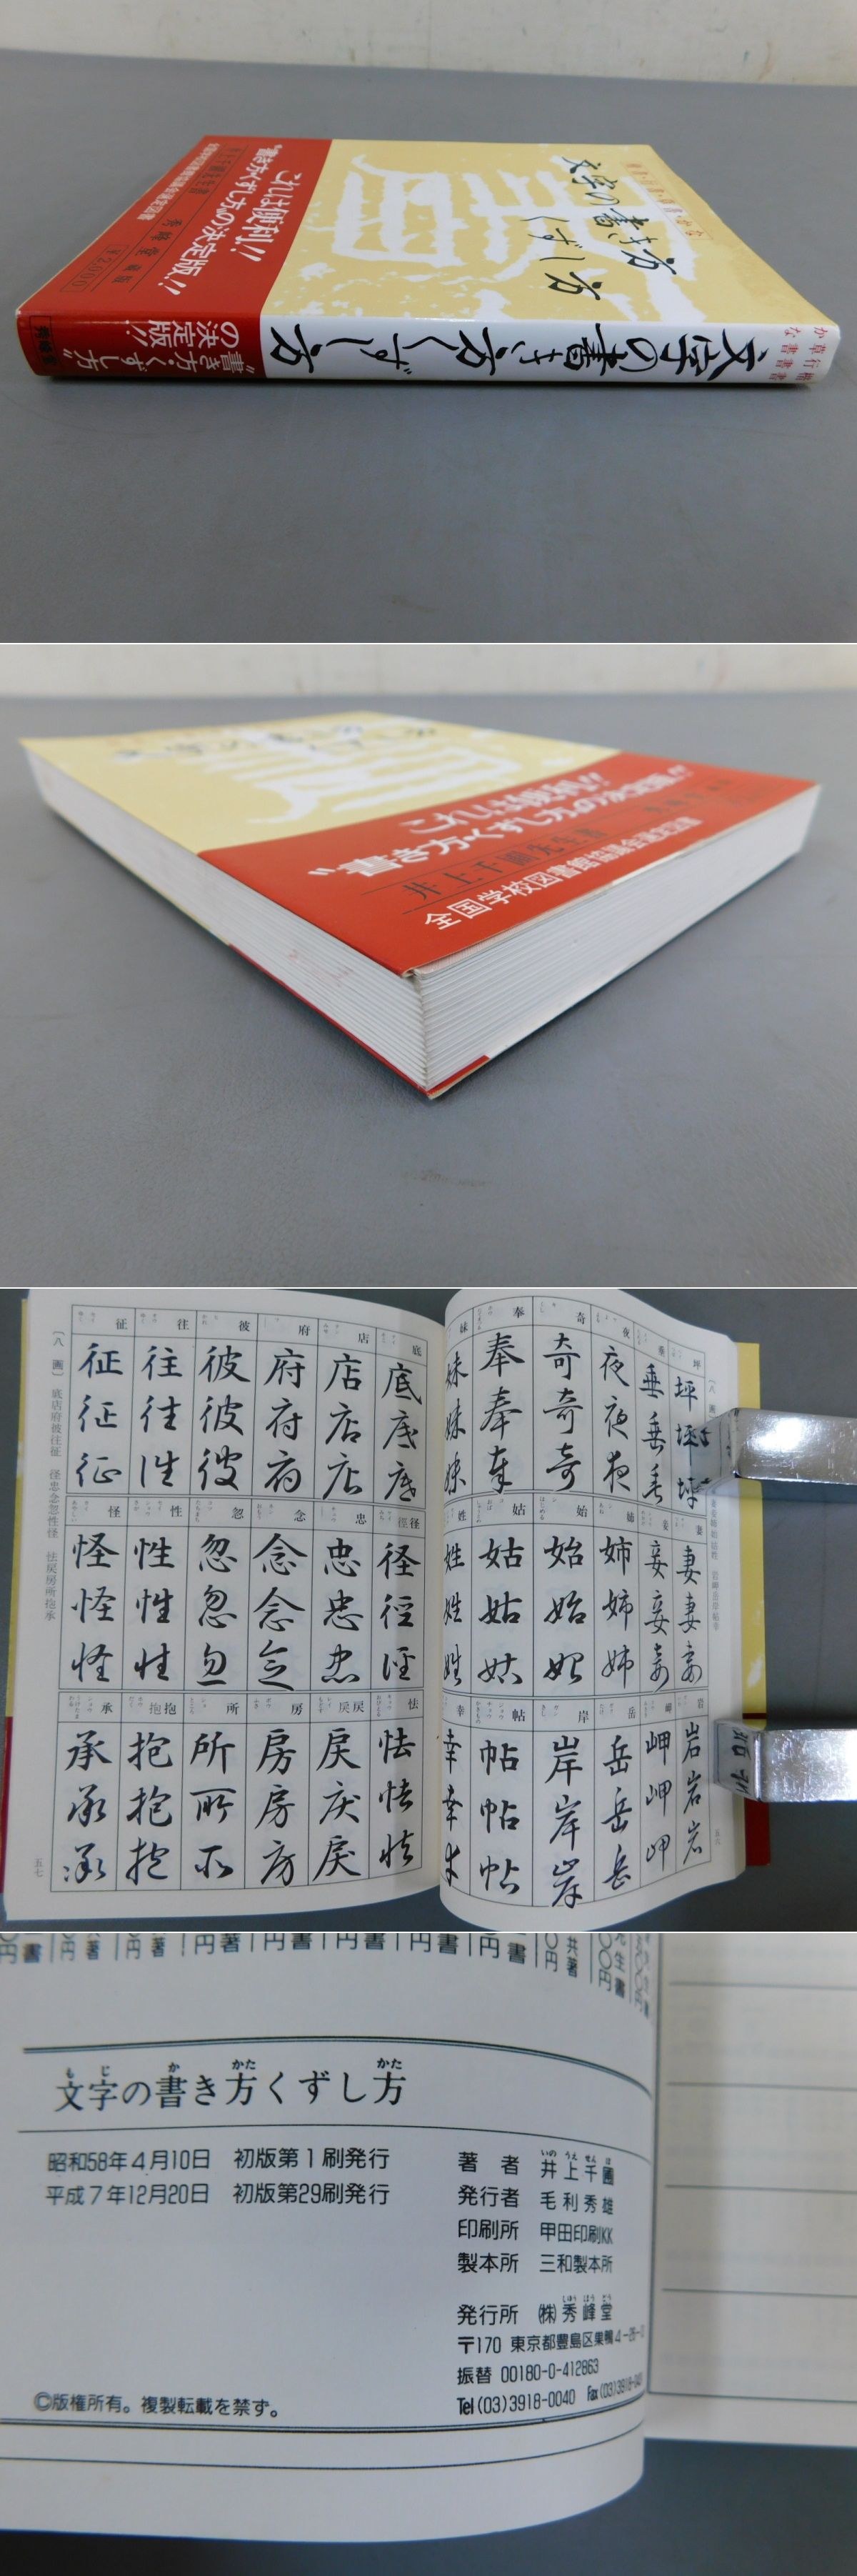 楷書・行書・草書・かな
文字の書き方
くずし方
これは便利!!
"書き方・くずし方"の決定版!!
井上千圃先生書
秀峰堂発行
¥2000
楷書
行書
草書
かな
文字の書き方くずし方
"書き方・くずし方"
の決定版!!
これは便利!!
"書き方・くずし方"の決定版!!
井上千圃先生書
全国学校図書館協議会選定図書
坪 垂 夜 奇 奉 妹
坪 垂 夜 奇 奉 妹
坪 垂 夜 奇 奉 妹
坪 垂 夜 奇 奉 妹
妻 妾 姉 始 姑 姓
妻 妾 姉 始 姑 姓
妻 妾 姉 始 姑 姓
妻 妾 姉 始 姑 姓
岩 岬 岳 岸 帖 幸
岩 岬 岳 岸 帖 幸
岩 岬 岳 岸 帖 幸
岩 岬 岳 岸 帖 幸
五六
底 店 府 彼 往 征
底 店 府 彼 往 征
底 店 府 彼 往 征
底 店 府 彼 往 征
径徑 忠 念 忽 性 怪
径 忠 念 忽 性 怪
径 忠 念 忽 性 怪
径 忠 念 忽 性 怪
怯 戻戾 房 所 抱抱 承
怯 戻 房 所 抱 承
怯 戻 房 所 抱 承
怯 戻 房 所 抱 承
〔八画〕 底店府彼往征 径忠念忽性怪 怯戻房所抱承
五七
文字の書き方くずし方
昭和58年4月10日 初版第1刷発行
平成7年12月20日 初版第29刷発行
著者 井上千圃
発行者 毛利秀雄
印刷所 甲田印刷KK
製本所 三和製本所
発行所 ㈱秀峰堂
〒170 東京都豊島区巣鴨
振替 00180-0-412863
Tel (03)3918-0040 Fax(03)3918-
©版権所有。複製転載を禁ず。